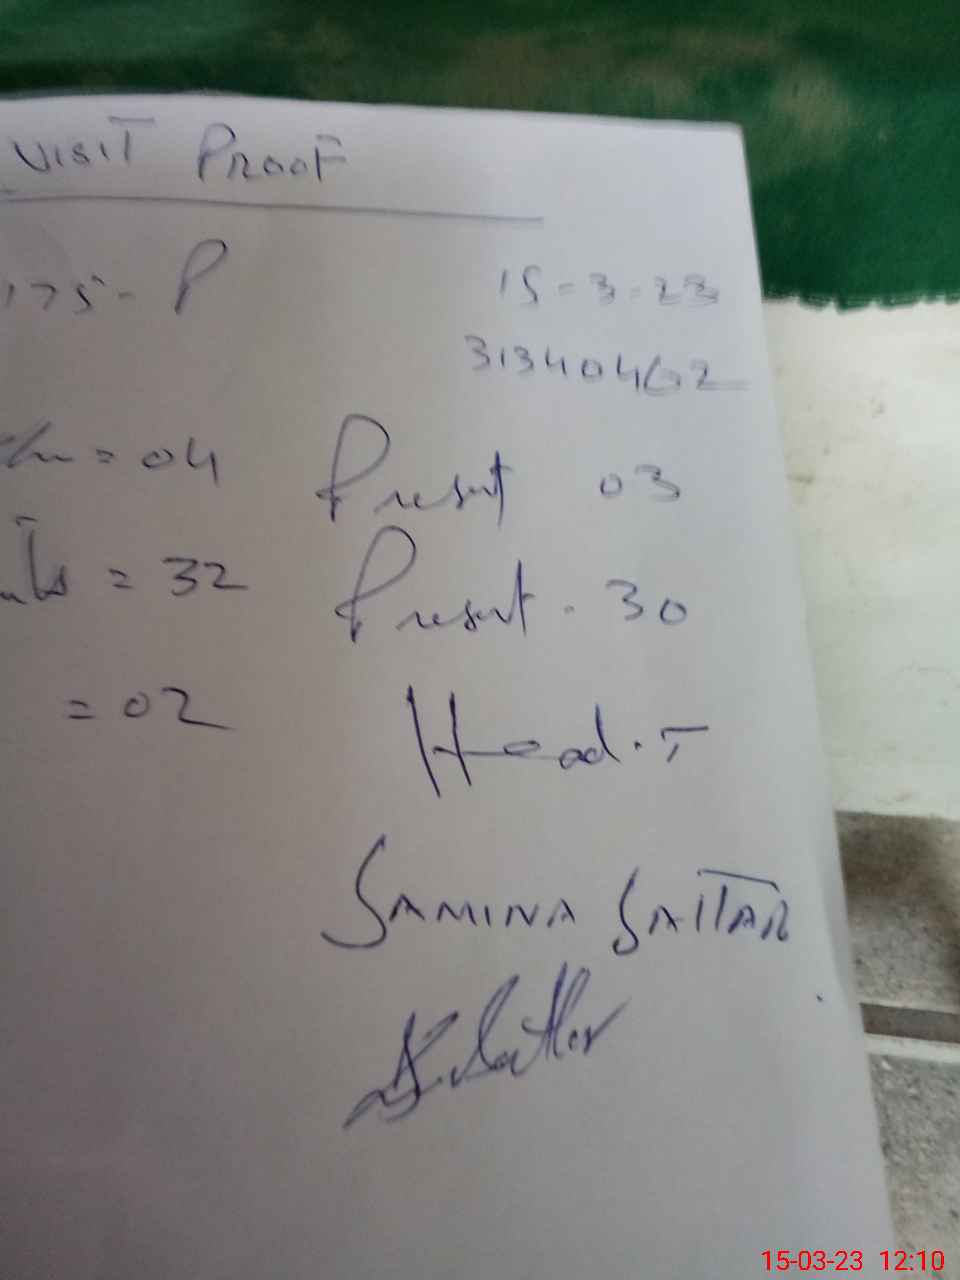 VISIT PROOF
175 - P 15-3-23
31340402
= 04 Present 03
= 32 Present . 30
= 02 Head . T
SAMINA SATTAR
15-03-23 12:10